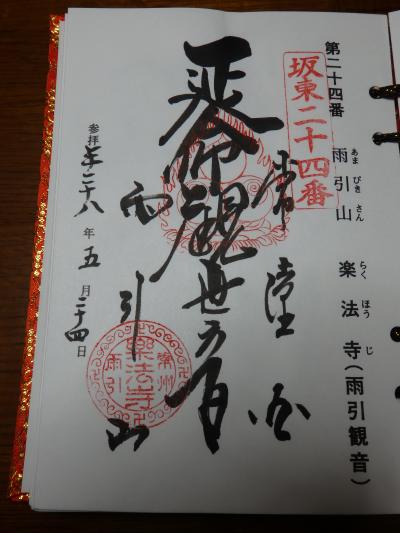 第二十四番　雨引山　楽法寺（雨引観音）
あま　びき　さん　らく　ほう　じ
坂東二十四番
延命観世音
雨引山
参拝 年二十八年五月二十四日
常州
雨引
楽法寺